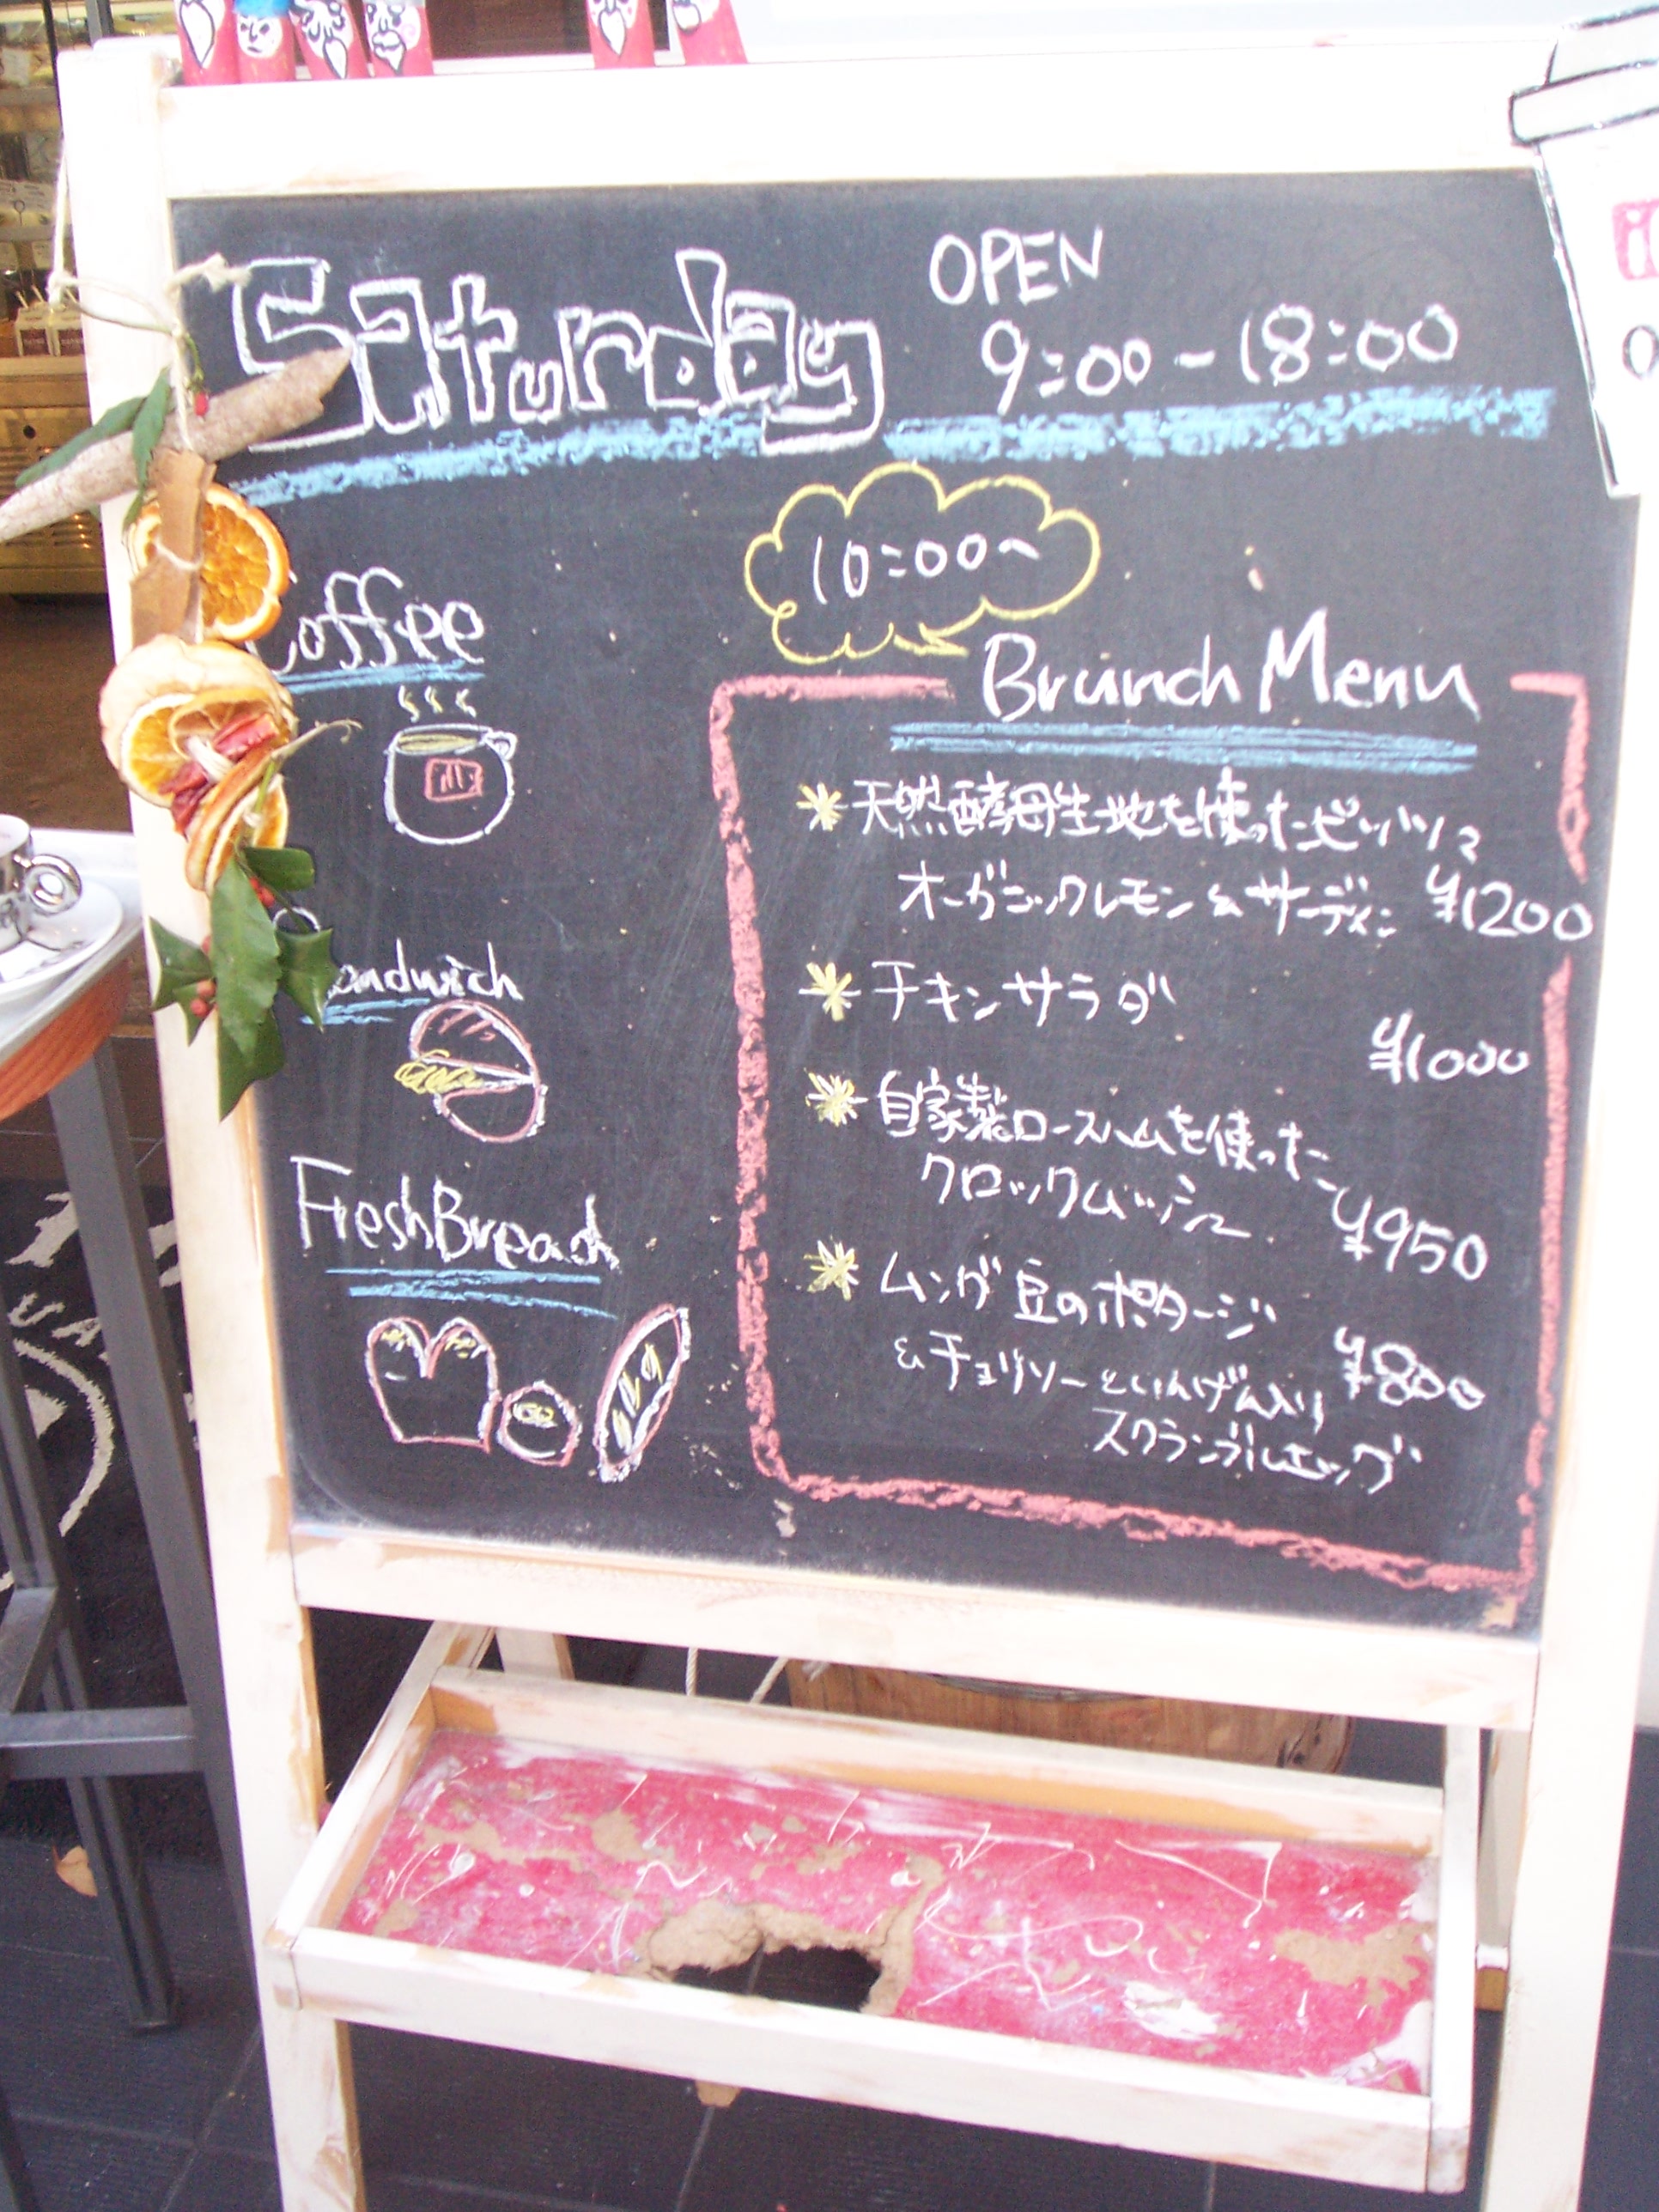 Saturday
OPEN
9:00-18:00
Coffee
Sandwich
Fresh Bread
10:00~
Brunch Menu
天然酵母生地を使ったピッツァ
オーガニックレモン&サーディン ¥1200
チキンサラダ
¥1000
自家製ロースハムを使った
クロックムッシュー ¥950
ムング豆のポタージュ
&チョリソーといんげん入り ¥800
スクランブルエッグ